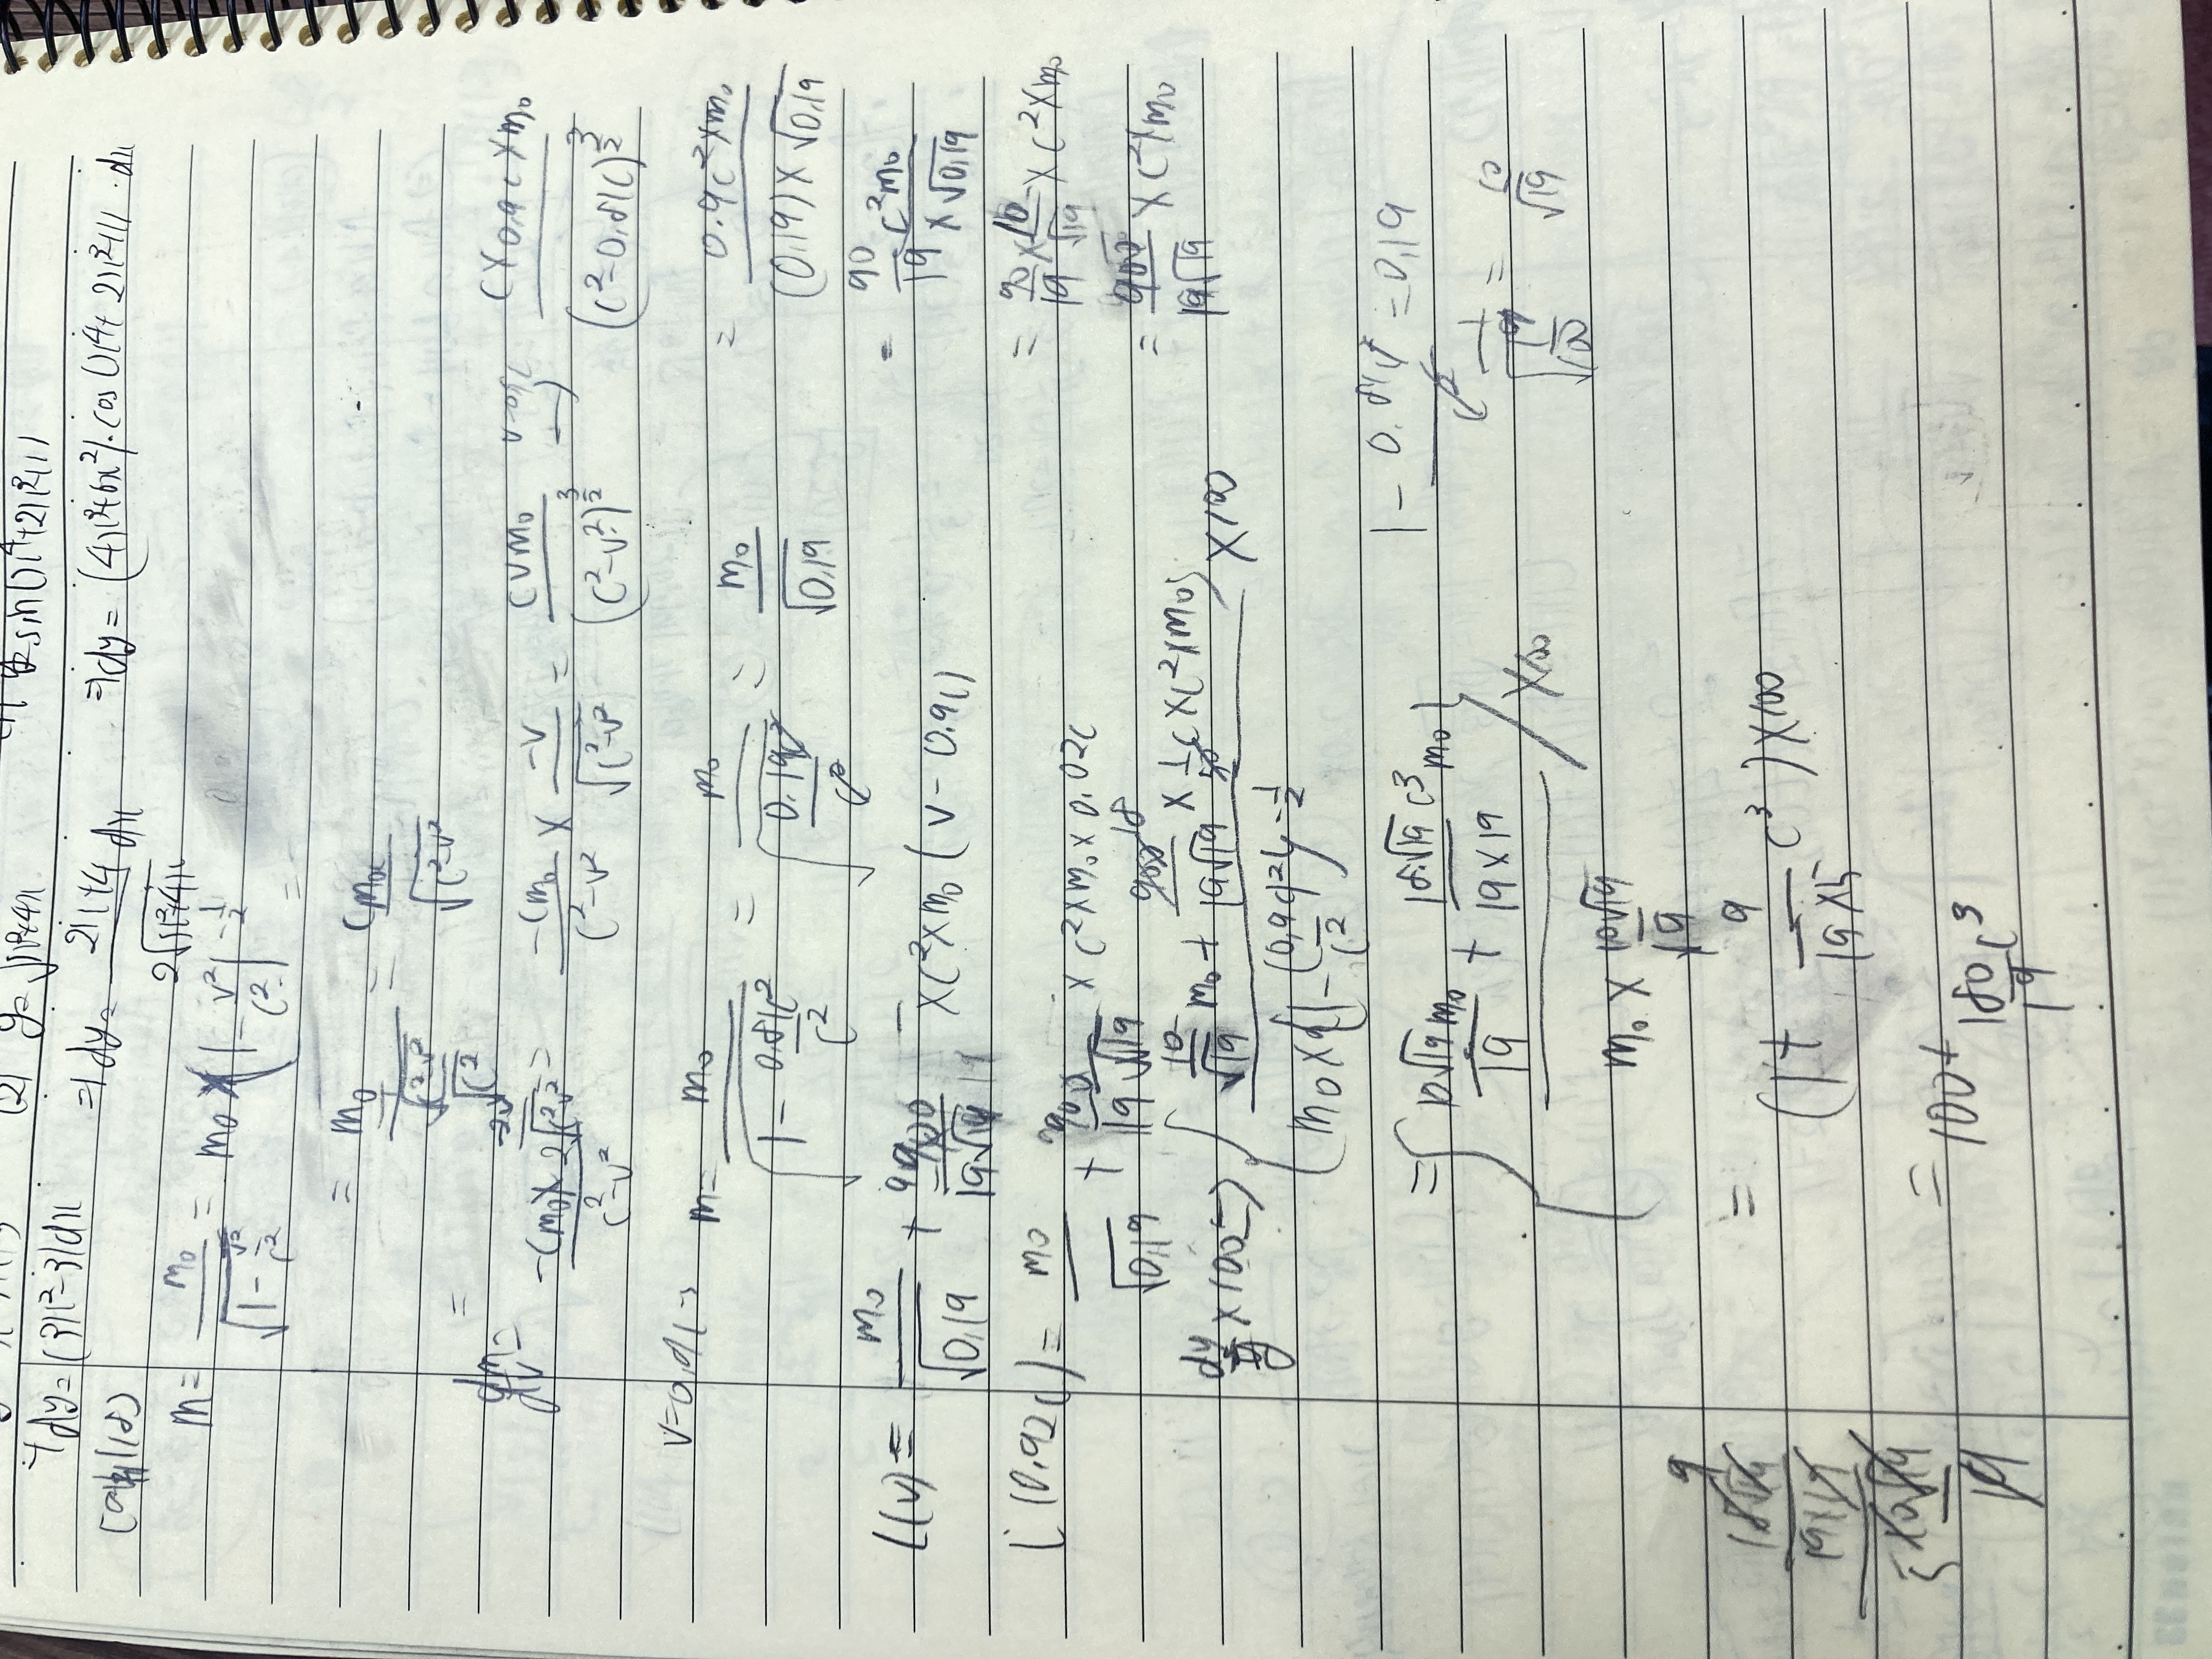 (2) y= √x²+4x
y= sin(x⁴+2x³+1)
dy=(3x²-3)dx
⇒ dy= 2x+4/2√x²+4x dx
⇒ dy= (4x³+6x²)·cos(x⁴+2x³+1)·dx
m= m₀/√1-v²/c² = m₀ × (1-v²/c²)^-1/2 =
= m₀/(√c²-v²/√c²) = cm₀/√c²-v²
=
dm/dv= -cm₀×-2v/2√c²-v²/c²-v² = -cm₀/c²-v² × -v/√c²-v² = cvm₀/(c²-v²)^3/2 v=0.9c → c×0.9c×m₀/(c²-0.81c²)^3/2
v=0.9c → m= m₀/√1-0.81c²/c² = m₀/√0.19c²/c² = m₀/√0.19
= 0.9c²×m₀/(0.19)×√0.19
= 90/19 c²m₀/×√0.19
L(v)= m₀/√0.19 + 900/19√19 ×c²×m₀(v-0.9c)
= 90/19×10/√19×c²×m₀
L(0.92c)= m₀/√0.19 + 900/19√19 ×c²×m₀×0.02c
= 900/19√19 ×c²×m₀
dy/y×100 ⇒ (10/√19 m₀+ 900 18/19√19 × 1/50 c×c²×m₀)/(m₀×(1-(0.9c)²/c²)^-1/2) ×100
1- 0.81c²/c² =0.19
=(10√19 m₀/19 + 18√19 c³/19×19 m₀)/(m₀× 10√19/19) ×100
1/√19/100 = 10/√19
= (1+ 9/19×5 c³)×100
= 100+ 180/19 c³
9
18√19/19×19
5 10√19/19